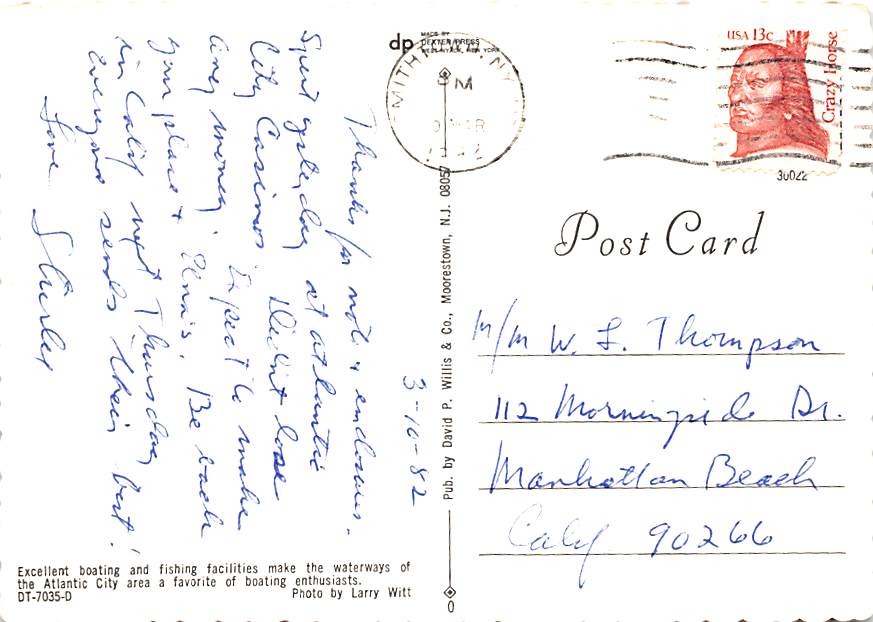 3-10-82
Thanks for note & enclosures.
Spent yesterday at Atlantic
City Casinos Didn't lose
any money. Expect to make
your place & Edna's. Be back
in Calif next Thursday
Everyone sends their best!
Love
Shirley
Excellent boating and fishing facilities make the waterways of
the Atlantic City area a favorite of boating enthusiasts.
DT-7035-D Photo by Larry Witt
dp MADE BY
DEXTER PRESS
WEST NYACK, NEW YORK
Pub. by David P. Willis & Co., Moorestown, N.J. 08057
PM
MAR
USA 13c
Crazy Horse
30022
Post Card
M/M W. L. Thompson
112 Morningside Dr.
Manhattan Beach
Calif 90266